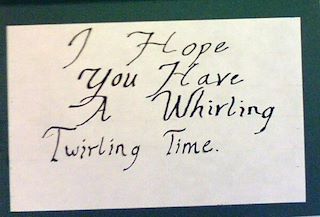 I Hope
You Have
A Whirling
Twirling Time.